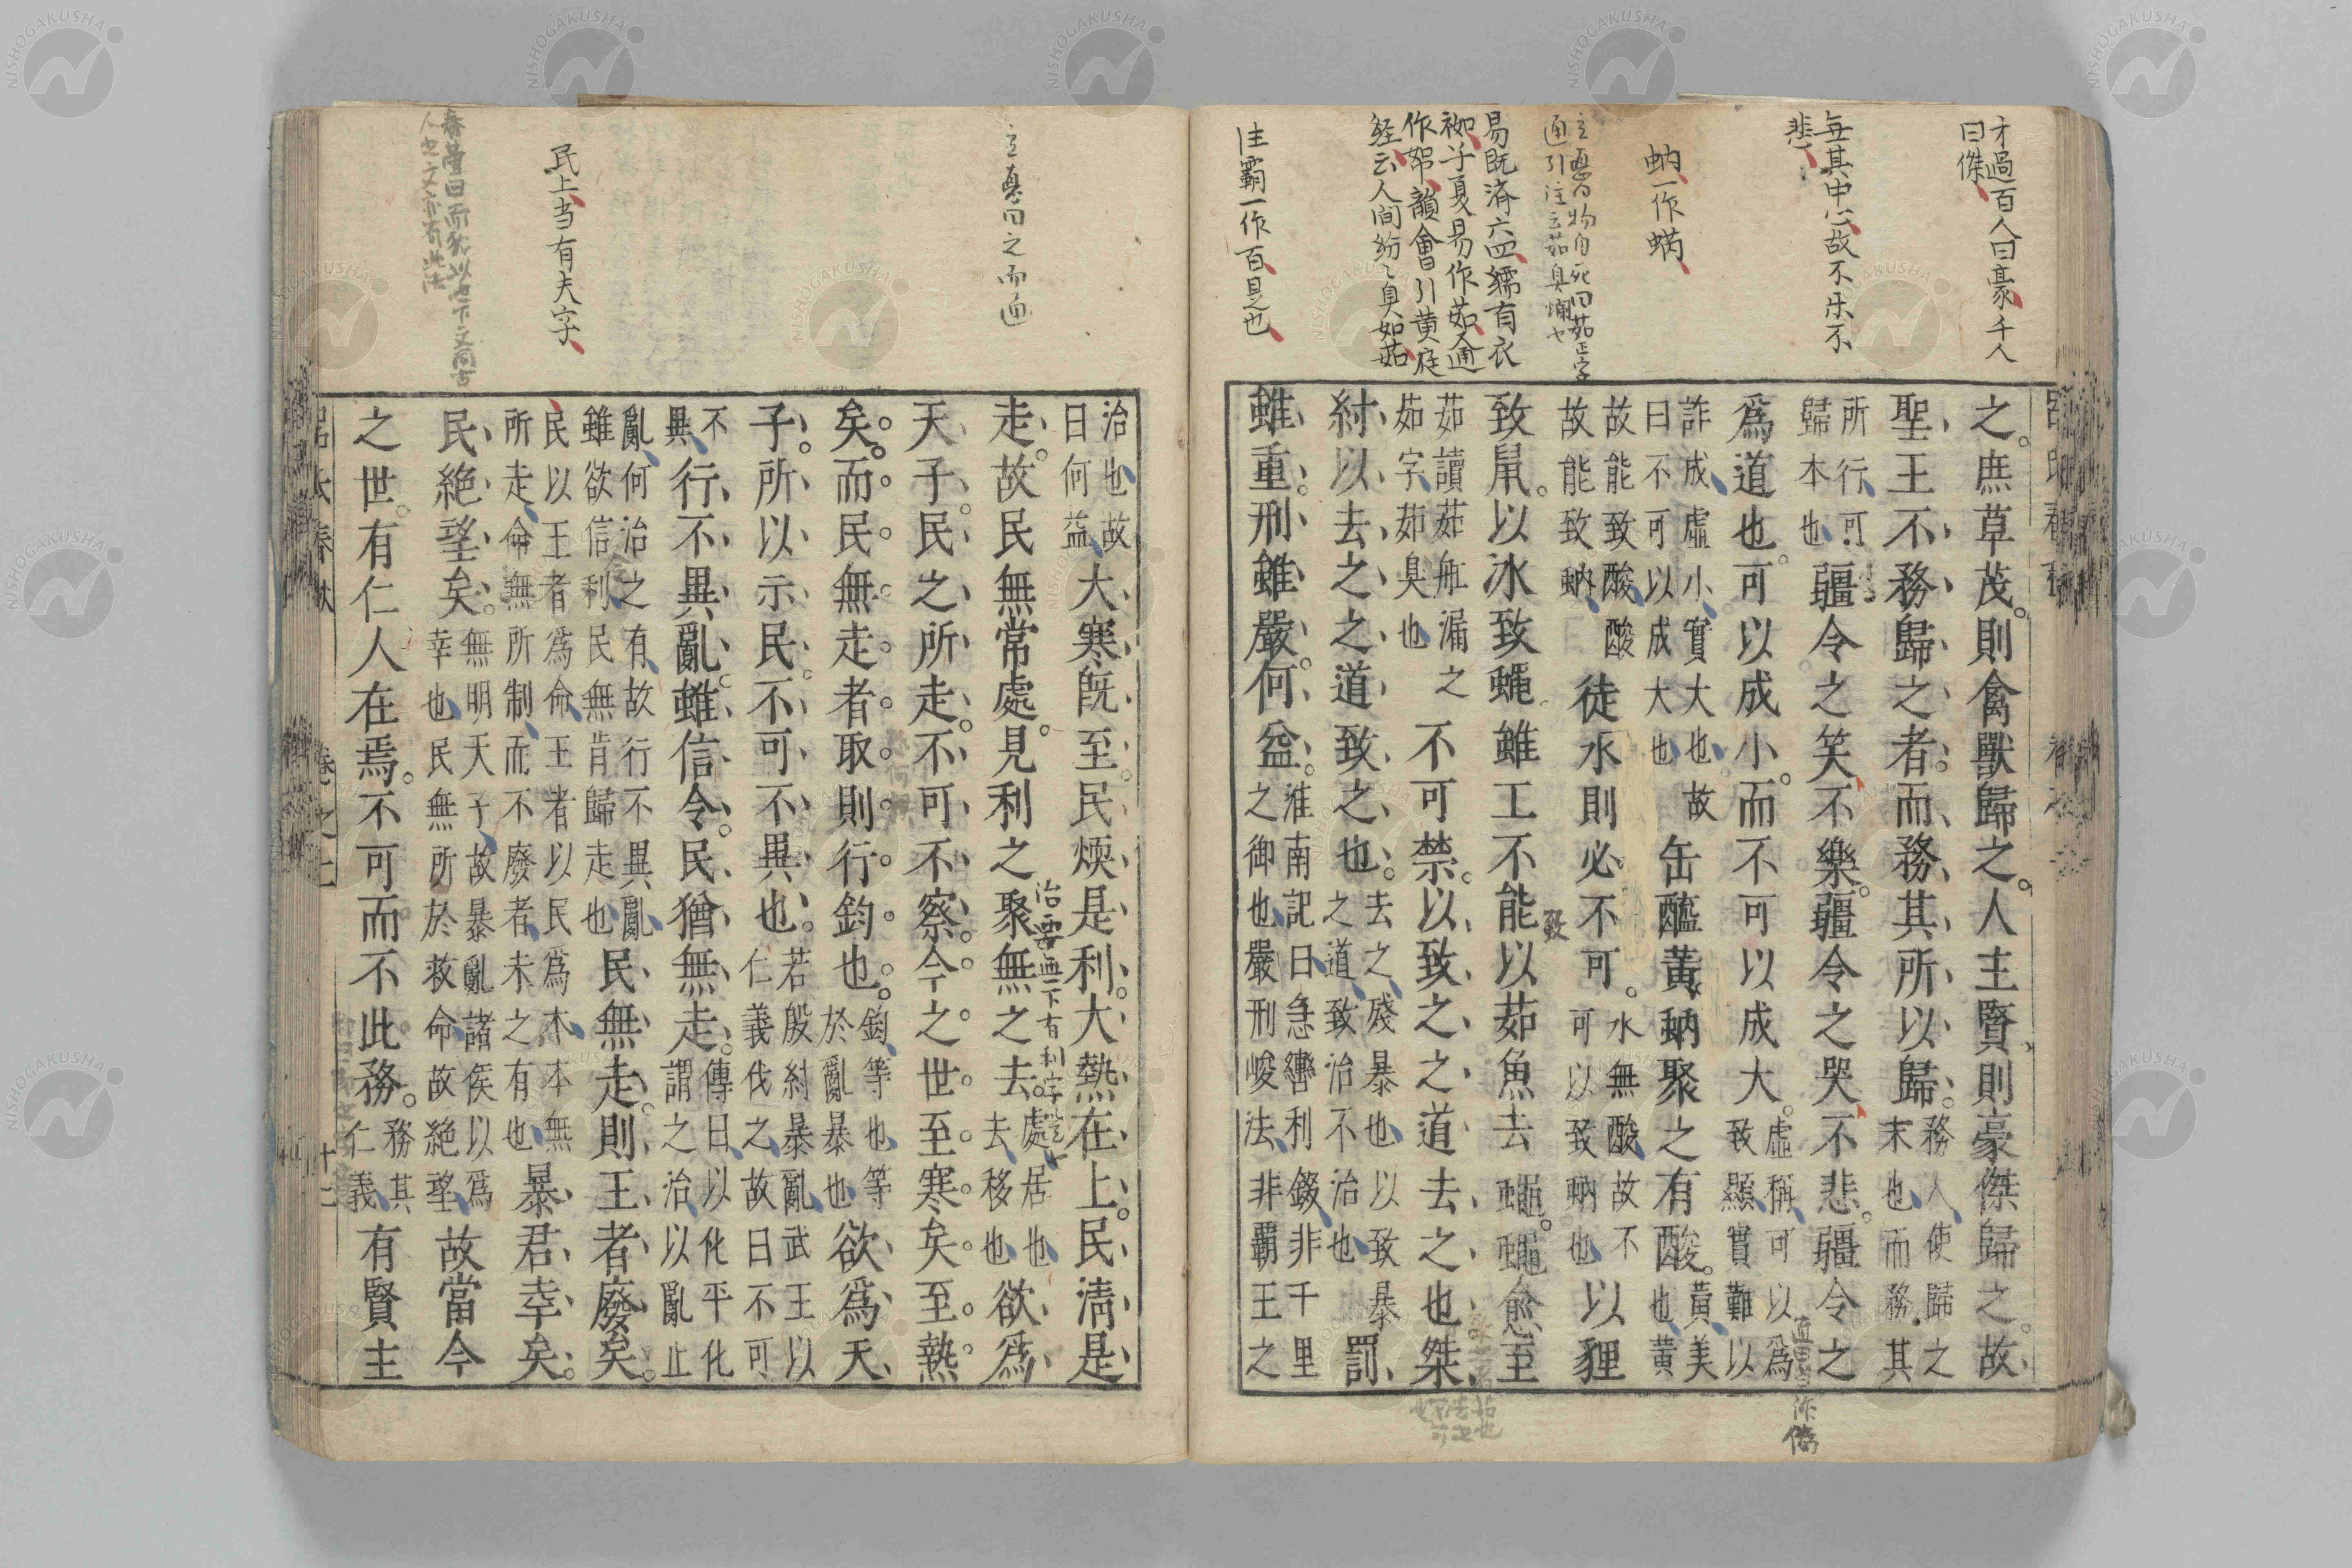 才過百人曰豪千人
曰傑
無其中心故不乐不
悲
蚋一作蜹
易既済六四繻有衣
袽子夏易作茹通
作帤韻會引黄庭
経云人间紛〻臭如茹
注霸一作百是也
之庶草茂則禽獸歸之人主賢則豪傑歸之故
聖王不務歸之者而務其所以歸務人使歸之
末也而務其
所行可
歸本也疆令之笑不樂疆令之哭不悲疆令之
爲道也可以成小而不可以成大虛稱可以爲
致顯實難以
詐成虛小實大也故
曰不可以成大也缶醯黃蚋聚之有酸黃美
也黃
故能致酸酸
故能致蚋徒水則必不可水無酸故不
可以致蚋也以狸
致鼠以冰致蠅雖工不能以茹魚去蠅蠅愈至
茹讀茹船漏之
茹字茹臭也不可禁以致之之道去之也桀
紂以去之之道致之也去之殘暴也以致暴
之道致治不治也罰
雖重刑雖嚴何益淮南記曰急轡利錣非千里
之御也嚴刑峻法非霸王之
立惠曰之而通
民上当有夫字
治也故
日何益大寒旣至民煗是利大熱在上民淸是
走故民無常處見利之聚無之去處居也
去移也欲爲
天子民之所走不可不察今之世至寒矣至熱
矣而民無走者取則行鈞也鈞等也等
於亂暴也欲爲天
子所以示民不可不異也若殷紂暴亂武王以
仁義伐之故曰不可
不
異行不異亂雖信令民猶無走傳曰以化平化
謂之治以亂止
亂何治之有故行不異亂
雖欲信利民無肯歸走也民無走則王者廢矣
民以王者爲命王者以民爲本本無
所走命無所制而不廢者未之有也暴君幸矣
民絕望矣無明天子故暴亂諸侯以爲
幸也民無所於救命故絕望故當今
之世有仁人在焉不可而不此務務其
仁義有賢主
呂氏春秋
卷之上
十二